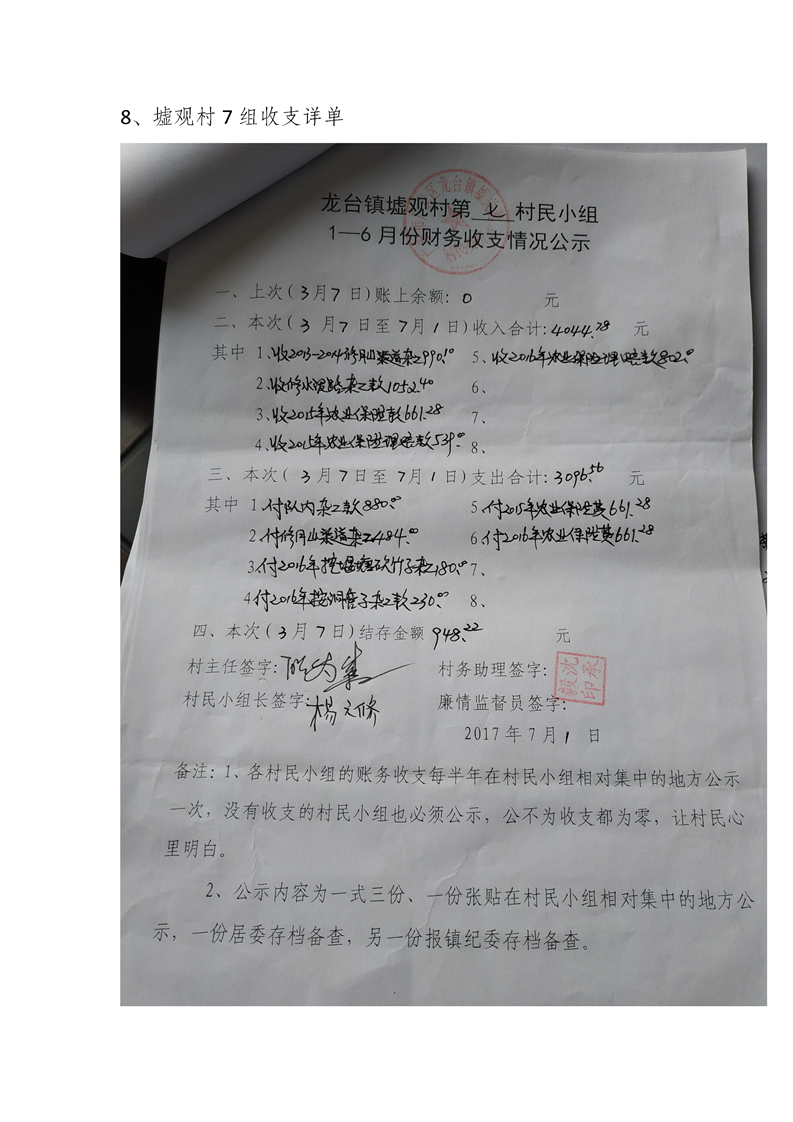 8、墟观村 7 组收支详单
龙台镇墟观村第 七 村民小组
1—6 月份财务收支情况公示
一、上次(3月7日)账上余额: 0 元
二、本次(3月7日至7月1日)收入合计: 4044.28 元
其中 1、收2013-2014修月山渠道杂工990.10 5、收2016年农业保险理赔款802.0
2、收修水泥路杂工款1052.40 6、
3、收2015年农业保险款661.28 7、
4、收2015年农业保险理赔款539.0 8、
三、本次(3月7日至7月1日)支出合计: 3096.56 元
其中 1、付队内杂工款880.00 5、付2015年农业保险费661.28
2、付修月山渠道杂工484.00 6、付2016年农业保险费661.28
3、付2016年挖堰塘砍竹子杂工180.00 7、
4、付2016年挖洞管子杂工款230.00 8、
四、本次(3月7日)结存金额 948.22 元
村主任签字: 村务助理签字:
村民小组长签字: 杨元修 廉情监督员签字:
沈承毅印
2017年7月1日
备注：1、各村民小组的账务收支每半年在村民小组相对集中的地方公示
一次，没有收支的村民小组也必须公示，公不为收支都为零，让村民心
里明白。
2、公示内容为一式三份、一份张贴在村民小组相对集中的地方公
示，一份居委存档备查，另一份报镇纪委存档备查。